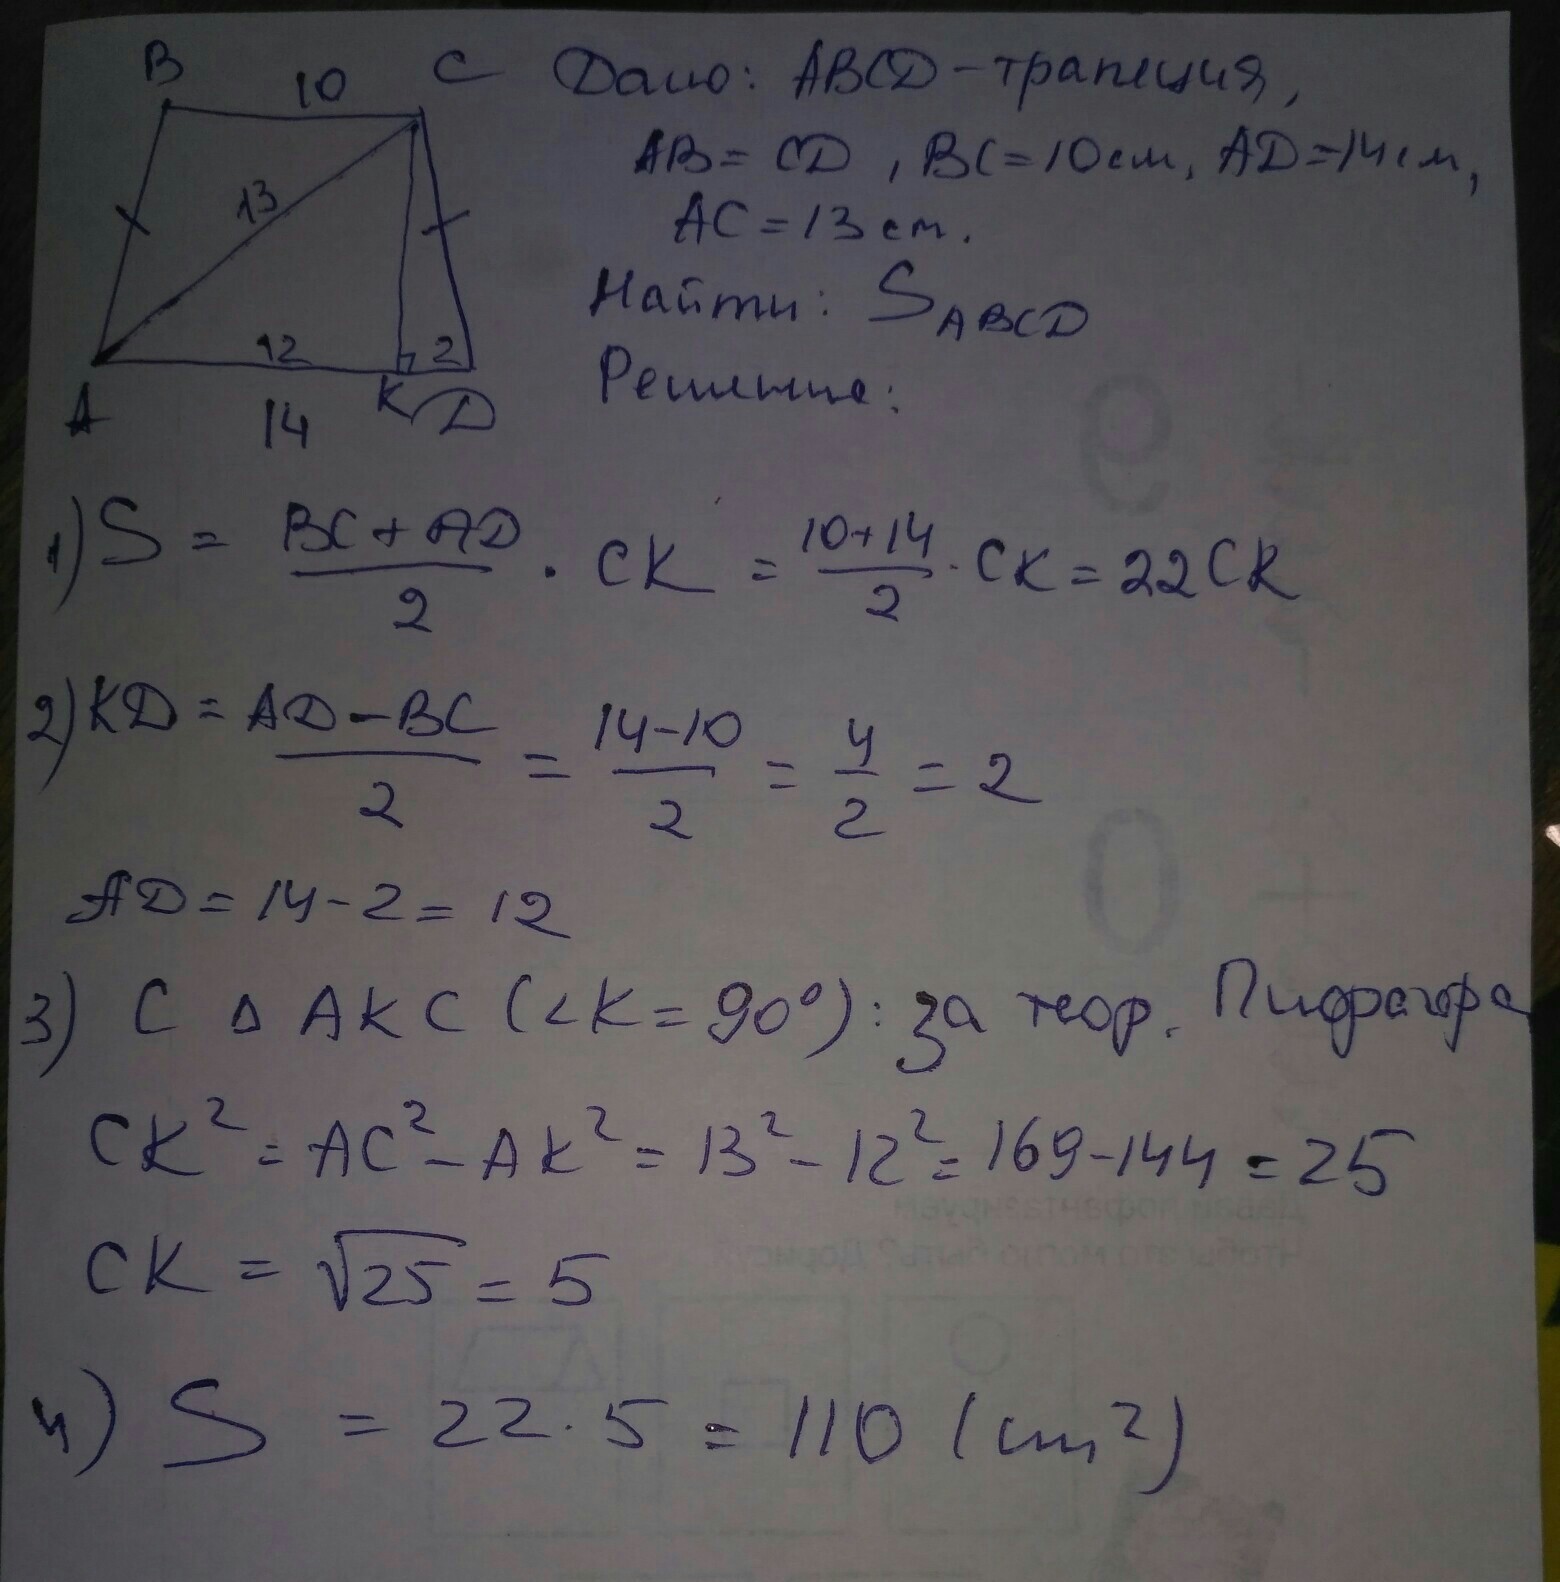 B 10 C Дано: ABCD - трапеция,
AB = CD, BC = 10 см, AD = 14 см,
13 AC = 13 см.
Найти: S ABCD
12 2
Решение:
A 14 K D
1) S = BC + AD / 2 · CK = 10+14 / 2 · CK = 22 CK
2) KD = AD - BC / 2 = 14-10 / 2 = 4 / 2 = 2
AD = 14 - 2 = 12
3) С Δ AKC (<K = 90°): за теор. Пифагора
CK² = AC² - AK² = 13² - 12² = 169 - 144 = 25
CK = √25 = 5
4) S = 22 · 5 = 110 (см²)